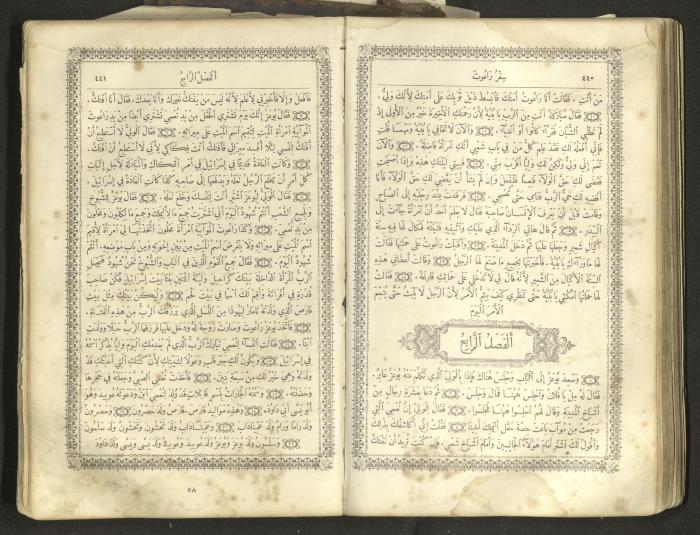 ٤٤٠ سِفْرُ رَاعُوتَ
مَنْ أَنْتِ. فَقَالَتْ أَنَا رَاعُوتُ أَمَتُكَ فَٱبْسُطْ ذَيْلَ ثَوْبِكَ عَلَى أَمَتِكَ لِأَنَّكَ وَلِيٌّ
فَقَالَ مُبَارَكَةٌ أَنْتِ مِنَ ٱلرَّبِّ يَا بُنَيَّةُ لِأَنَّ رَحْمَتَكِ ٱلْأَخِيرَةَ خَيْرٌ مِنَ ٱلْأُولَى إِذْ
لَمْ تَطْلُبِي ٱلشُّبَّانَ فُقَرَاءَ كَانُوا أَوْ أَغْنِيَاءَ. وَٱلْآنَ لَا تَخَافِي يَا بُنَيَّةُ وَمَهْمَا قُلْتِ
فَإِنِّي أَفْعَلُهُ لَكِ فَقَدْ عَلِمَ كُلُّ مَنْ فِي بَابِ شَعْبِي أَنَّكِ ٱمْرَأَةٌ فَاضِلَةٌ. وَٱلْآنَ
نَعَمْ إِنِّي وَلِيٌّ وَلٰكِنْ لَكِ وَلِيًّا أَقْرَبَ مِنِّي. فَبِيتِي لَيْلَتَكِ هٰذِهِ وَإِذَا أَصْبَحْتِ
فَقَضَى لَكِ حَقَّ ٱلْوَلَاءِ فَنِعِمَّا فَلْيَفْعَلْ وَإِنْ لَمْ يَشَأْ أَنْ يَقْضِيَ لَكِ حَقَّ ٱلْوَلَاءِ فَأَنَا
أَقْضِيهِ لَكِ حَيٌّ ٱلرَّبُّ فَنَامِي حَتَّى تُصْبِحِي. فَرَقَدَتْ عِنْدَ رِجْلَيْهِ إِلَى ٱلصَّبَاحِ
وَقَامَتْ قَبْلَ أَنْ يَعْرِفَ ٱلْإِنْسَانُ صَاحِبَهُ فَقَالَ لَا يَعْلَمْ أَحَدٌ أَنَّ ٱمْرَأَةً جَاءَتْ إِلَى
ثُمَّ قَالَ هَاتِي ٱلرِّدَاءَ ٱلَّذِي عَلَيْكِ وَأَثْبِتِيهِ فَثَبَّتَتْهُ فَكَالَ لَهَا فِيهِ سِتَّةَ
أَكْيَالِ شَعِيرٍ وَجَعَلَهَا عَلَيْهَا ثُمَّ دَخَلَ ٱلْمَدِينَةَ. وَأَقْبَلَتْ رَاعُوتُ عَلَى حَمَاتِهَا فَقَالَتْ
لَهَا مَا وَرَاءَكِ يَا بُنَيَّةُ. فَأَخْبَرَتْهَا بِجَمِيعِ مَا صَنَعَ لَهَا ٱلرَّجُلُ وَقَالَتْ أَعْطَانِي هٰذِهِ
ٱلسِّتَّةَ ٱلْأَكْيَالَ مِنَ ٱلشَّعِيرِ لِأَنَّهُ قَالَ لِي لَا تَدْخُلِي عَلَى حَمَاتِكِ فَارِغَةً. فَقَالَتْ
لَهَا حَمَاتُهَا ٱمْكُثِي يَا بُنَيَّةُ حَتَّى تَنْظُرِي كَيْفَ يَتِمُّ ٱلْأَمْرُ لِأَنَّ ٱلرَّجُلَ لَا يَلْبَثُ حَتَّى يُتَمِّمَ
ٱلْأَمْرَ ٱلْيَوْمَ
أَلْفَصْلُ ٱلرَّابِعُ
وَصَعِدَ بُوعَزُ إِلَى ٱلْبَابِ وَجَلَسَ هُنَاكَ فَإِذَا بِٱلْوَلِيِّ ٱلَّذِي تَكَلَّمَ عَنْهُ بُوعَزُ عَابِرٌ.
فَقَالَ لَهُ مِلْ يَا فُلَانُ وَٱجْلِسْ هٰهُنَا فَمَالَ وَجَلَسَ. ثُمَّ دَعَا عَشَرَةَ رِجَالٍ مِنْ
أَشْيَاخِ ٱلْمَدِينَةِ وَقَالَ لَهُمُ ٱجْلِسُوا هٰهُنَا فَجَلَسُوا. فَقَالَ لِلْوَلِيِّ إِنَّ نُعْمِيَ ٱلَّتِي
رَجَعَتْ مِنْ مُوآبَ بَاعَتْ حِصَّةَ حَقْلِ أَلِيمَلِكَ أَخِينَا. فَقُلْتُ إِنِّي أُكَاشِفُكَ بِذٰلِكَ
وَأَقُولُ لَكَ ٱشْتَرِ أَمَامَ هٰؤُلَاءِ ٱلْجَالِسِينَ وَأَمَامَ أَشْيَاخِ شَعْبِي. فَإِنْ كُنْتَ تُرِيدُ أَنْ تَفْتَكَّ
أَلْفَصْلُ ٱلرَّابِعُ ٤٤١
فَٱفْعَلْ وَإِلَّا فَأَخْبِرْنِي لِأَعْلَمَ لِأَنَّهُ لَيْسَ مَنْ يَفْتَكُّ غَيْرُكَ وَأَنَا بَعْدَكَ. فَقَالَ أَنَا أَفْتَكُّ.
فَقَالَ بُوعَزُ إِنَّكَ يَوْمَ تَشْتَرِي ٱلْحَقْلَ مِنْ يَدِ نُعْمِي تَشْتَرِي أَيْضًا مِنْ يَدِ رَاعُوتَ
ٱلْمُوآبِيَّةِ ٱمْرَأَةِ ٱلْمَيْتِ لِتُقِيمَ ٱسْمَ ٱلْمَيْتِ عَلَى مِيرَاثِهِ. فَقَالَ ٱلْوَلِيُّ لَا أَسْتَطِيعُ أَنْ
أَفْتَكَّ لِنَفْسِي لِئَلَّا أُفْسِدَ مِيرَاثِي فَٱفْتَكَّ أَنْتَ فَكَاكِي لِأَنِّي لَا أَسْتَطِيعُ أَنْ أَفْتَكَّ.
وَكَانَتِ ٱلْعَادَةُ قَدِيمًا فِي إِسْرَائِيلَ فِي أَمْرِ ٱلْفَكَاكِ وَٱلْمُبَادَلَةِ لِأَجْلِ إِثْبَاتِ
كُلِّ أَمْرٍ أَنْ يَخْلَعَ ٱلرَّجُلُ نَعْلَهُ وَيَدْفَعَهَا إِلَى صَاحِبِهِ هٰكَذَا كَانَتِ ٱلْعَادَةُ فِي إِسْرَائِيلَ.
فَقَالَ ٱلْوَلِيُّ لِبُوعَزَ ٱشْتَرِ أَنْتَ لِنَفْسِكَ وَخَلَعَ نَعْلَهُ. فَقَالَ بُوعَزُ لِلشُّيُوخِ
وَلِجَمِيعِ ٱلشَّعْبِ أَنْتُمْ شُهُودٌ ٱلْيَوْمَ أَنِّي ٱشْتَرَيْتُ جَمِيعَ مَا لِأَلِيمَلِكَ وَجَمِيعَ مَا لِكِلْيُونَ وَمَحْلُونَ
مِنْ يَدِ نُعْمِي. وَكَذَا رَاعُوتُ ٱلْمُوآبِيَّةُ ٱمْرَأَةُ مَحْلُونَ أَتَّخِذُهَا لِي ٱمْرَأَةً لِأُقِيمَ
ٱسْمَ ٱلْمَيْتِ عَلَى مِيرَاثِهِ وَلَا يَنْقَرِضَ ٱسْمُ ٱلْمَيْتِ مِنْ بَيْنِ إِخْوَتِهِ وَمِنْ بَابِ مَوْضِعِهِ. أَنْتُمْ
شُهُودٌ ٱلْيَوْمَ. فَقَالَ جَمِيعُ ٱلْقَوْمِ ٱلَّذِينَ فِي ٱلْبَابِ وَٱلشُّيُوخُ نَحْنُ شُهُودٌ فَلْيَجْعَلِ
ٱلرَّبُّ ٱلْمَرْأَةَ ٱلدَّاخِلَةَ بَيْتَكَ كَرَاحِيلَ وَلَيْئَةَ ٱللَّتَيْنِ بَنَتَا بَيْتَ إِسْرَائِيلَ فَكُنْ صَاحِبَ
قُدْرَةٍ فِي أَفْرَاتَةَ وَأَقِمْ لَكَ ٱسْمًا فِي بَيْتَ لَحْمَ. وَلْيَكُنْ بَيْتُكَ مِثْلَ بَيْتِ
فَارَصَ ٱلَّذِي وَلَدَتْهُ تَامَارُ لِيَهُوذَا مِنَ ٱلنَّسْلِ ٱلَّذِي يَرْزُقُكَ ٱلرَّبُّ مِنْ هٰذِهِ ٱلْفَتَاةِ.
فَأَخَذَ بُوعَزُ رَاعُوتَ وَصَارَتْ زَوْجَةً لَهُ وَدَخَلَ عَلَيْهَا فَرَزَقَهَا ٱلرَّبُّ حَبَلًا وَوَلَدَتِ
ٱبْنًا. فَقَالَتِ ٱلنِّسَاءُ لِنُعْمِي تَبَارَكَ ٱلرَّبُّ ٱلَّذِي لَمْ يُعْدِمْكِ ٱلْيَوْمَ وَلِيًّا يُذْكَرُ ٱسْمُهُ
فِي إِسْرَائِيلَ. وَيَكُونُ لَكِ جَبْرَ قَلْبٍ وَعَوْلًا لِشَيْبَتِكِ لِأَنَّ كَنَّتَكِ ٱلَّتِي أَحَبَّتْكِ قَدْ
وَلَدَتْهُ وَهِيَ خَيْرٌ لَكِ مِنْ سَبْعَةِ بَنِينَ. فَأَخَذَتْ نُعْمِي ٱلصَّبِيَّ وَجَعَلَتْهُ فِي حِجْرِهَا
وَحَضَنَتْهُ. وَسَمَّتْهُ ٱلْجَارَاتُ بِٱسْمٍ قَائِلَاتٍ قَدْ وُلِدَ لِنُعْمِي ٱبْنٌ وَدَعَوْنَهُ عُوبِيدَ وَهُوَ
أَبُو يَسَّى أَبِي دَاوُدَ. وَهٰذِهِ مَوَالِيدُ فَارَصَ. فَارَصُ وَلَدَ حَصْرُونَ. وَحَصْرُونُ
وَلَدَ رَامًا وَرَامُ وَلَدَ عَمِّينَادَابَ. وَعَمِّينَادَابُ وَلَدَ نَحْشُونَ وَنَحْشُونُ وَلَدَ سَلْمُونَ
وَسَلْمُونُ وَلَدَ بُوعَزَ وَبُوعَزُ وَلَدَ عُوبِيدَ وَعُوبِيدُ وَلَدَ يَسَّى وَيَسَّى وَلَدَ دَاوُدَ
٥٨